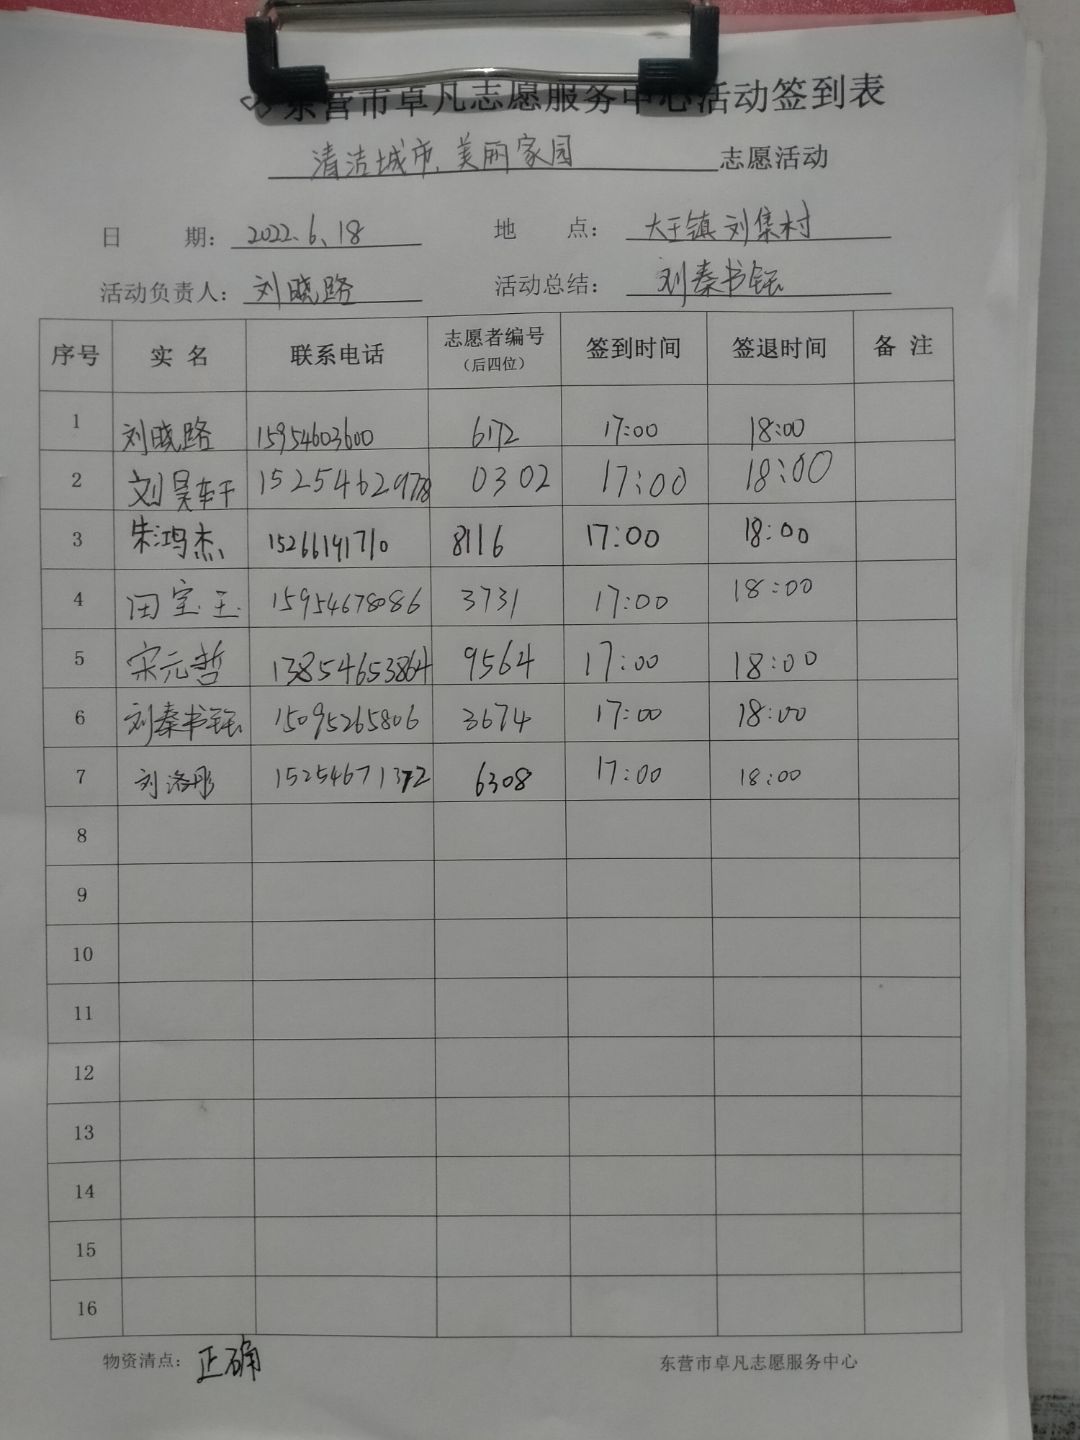 东营市卓凡志愿服务中心活动签到表
清洁城市、美丽家园 志愿活动
日 期： 2022.6.18 地 点： 大王镇刘集村
活动负责人： 刘晓路 活动总结： 刘秦书钰
序号 实名 联系电话 志愿者编号（后四位） 签到时间 签退时间 备注
1 刘晓路 15954603600 6172 17:00 18:00
2 刘昊轩 15254629778 0302 17:00 18:00
3 朱鸿杰 15266191710 8116 17:00 18:00
4 田宝玉 15954678086 3731 17:00 18:00
5 宋元哲 13854653864 9564 17:00 18:00
6 刘秦书钰 15095265806 3674 17:00 18:00
7 刘洛彤 15254671372 6308 17:00 18:00
8
9
10
11
12
13
14
15
16
物资清点： 正确 东营市卓凡志愿服务中心